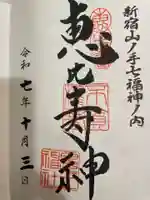 新宿山ノ手七福神ノ内
恵比寿神
令和七年十月三日